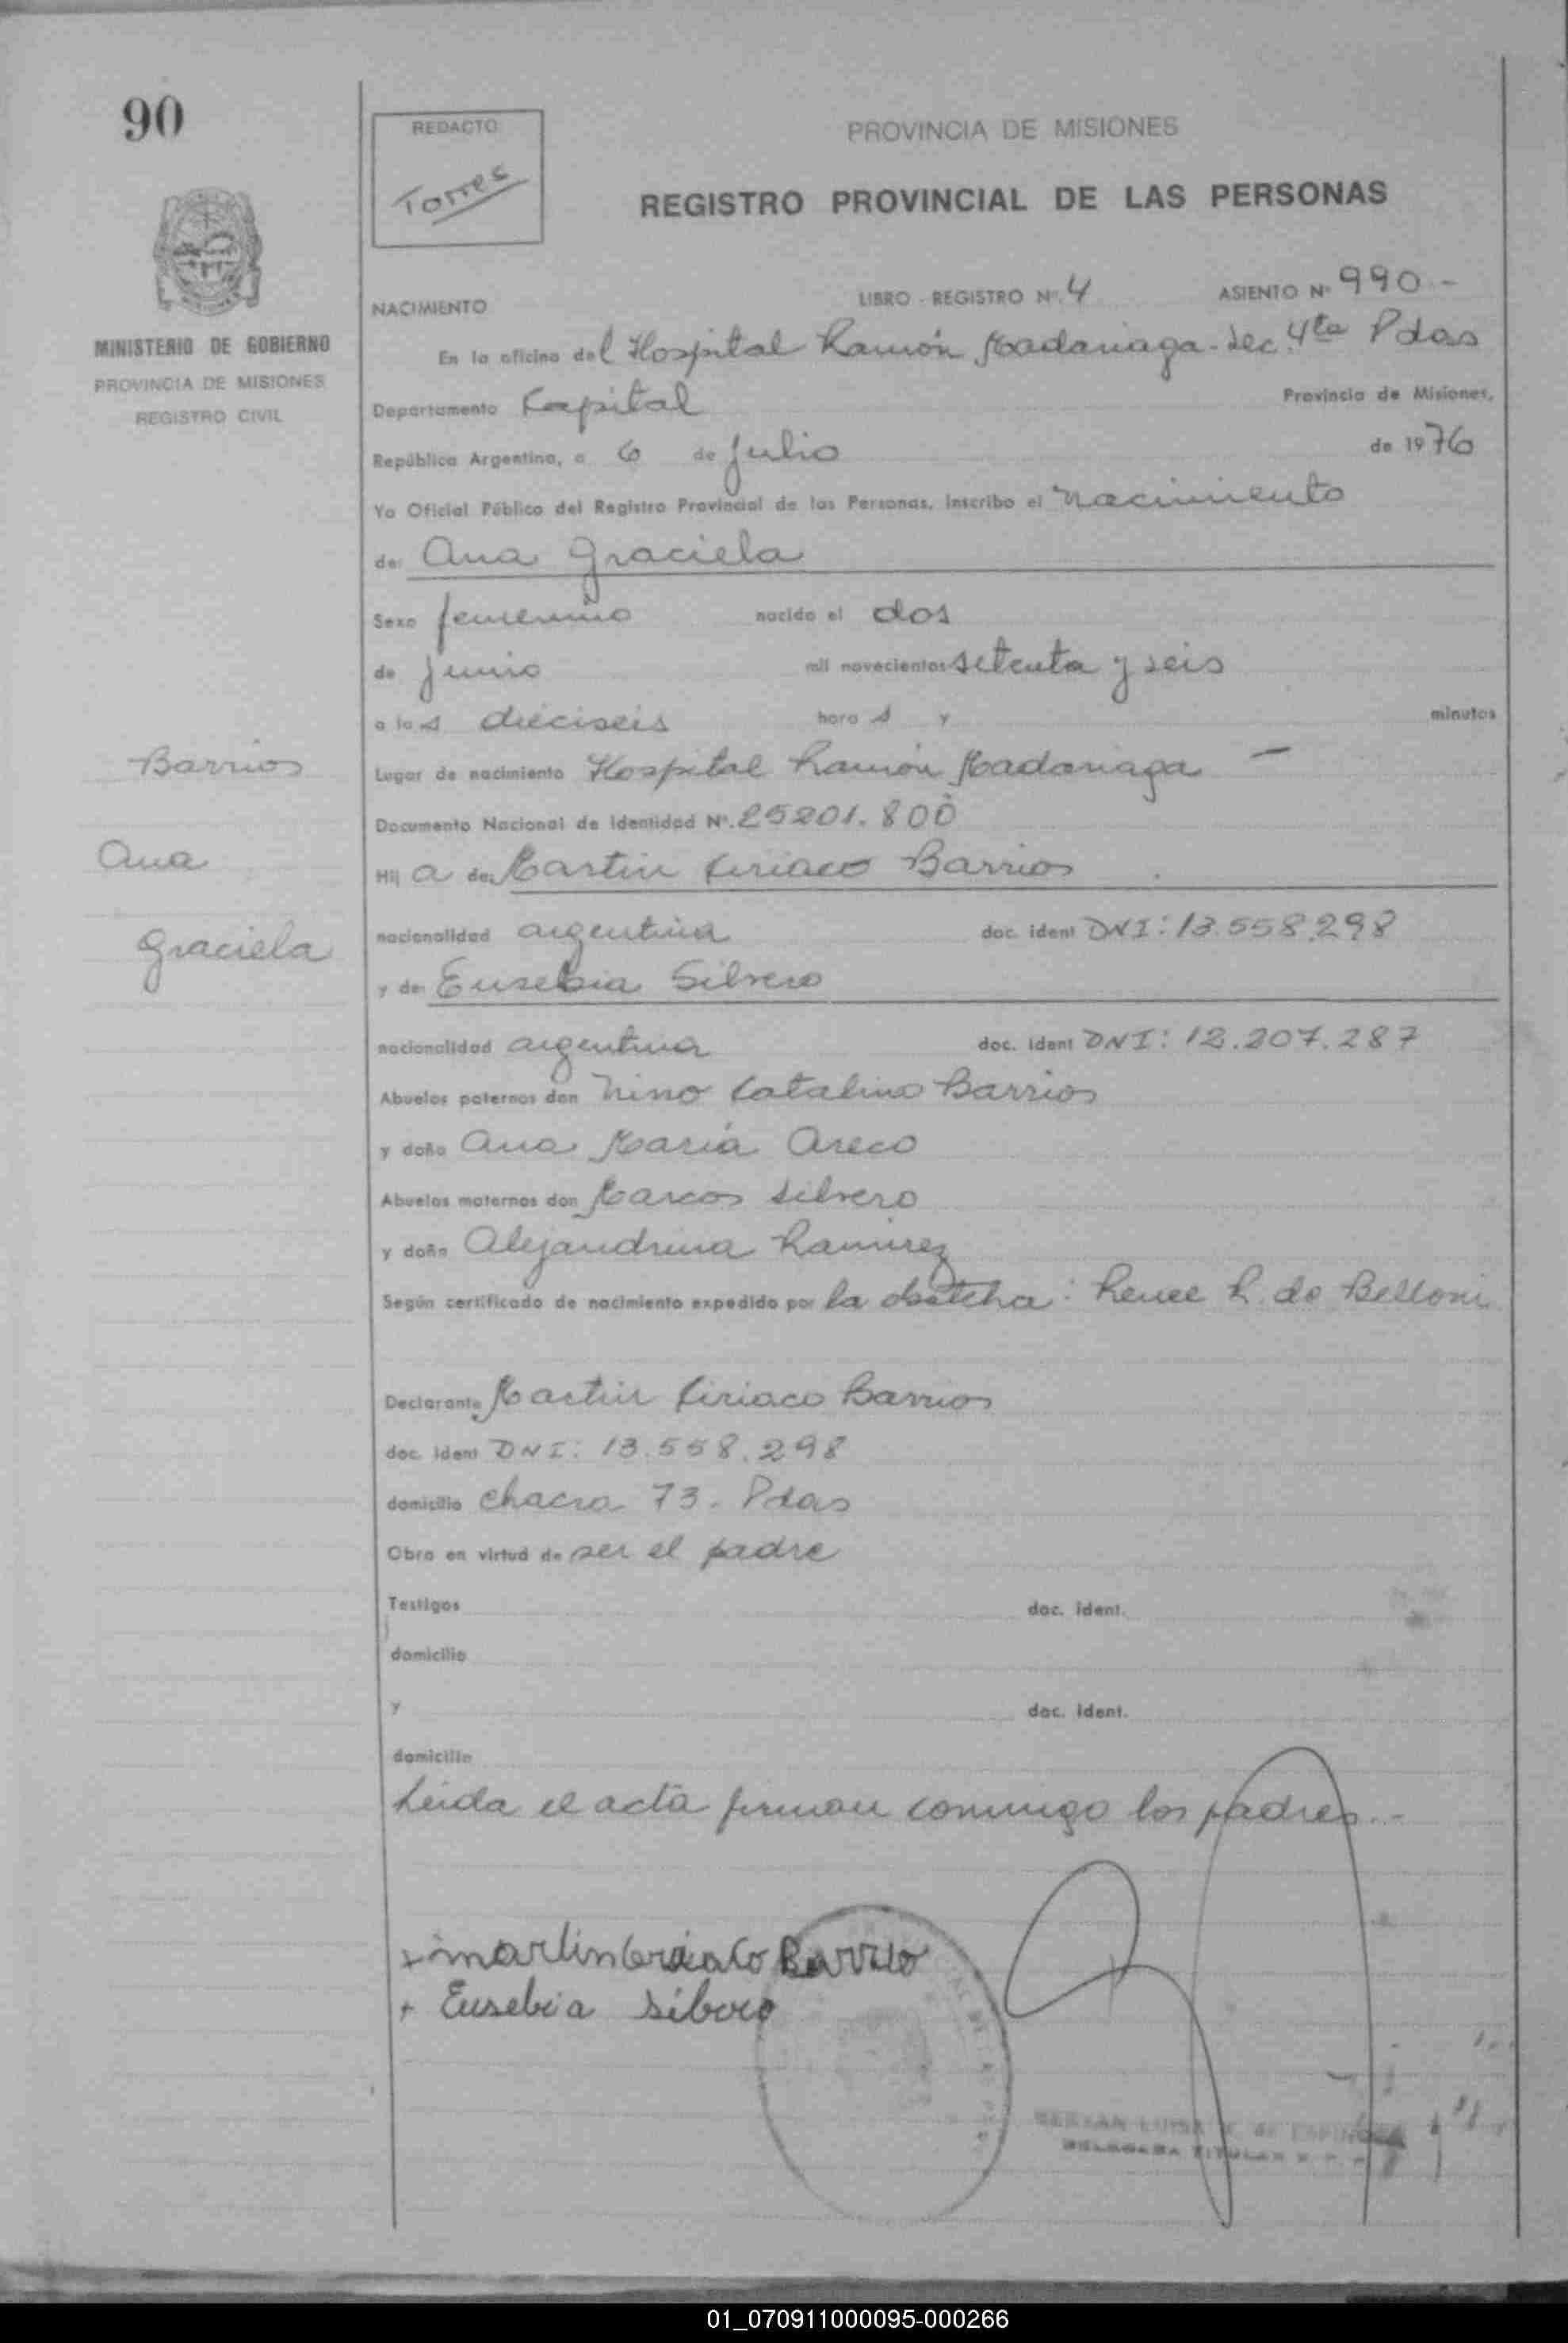 90
REDACTO
Torres
PROVINCIA DE MISIONES
REGISTRO PROVINCIAL DE LAS PERSONAS
MINISTERIO DE GOBIERNO
PROVINCIA DE MISIONES
REGISTRO CIVIL
NACIMIENTO LIBRO - REGISTRO Nº. 4 ASIENTO Nº 990 -
En la oficina del Hospital Ramón Madariaga - Sec. 4ta Pdas
Departamento Capital Provincia de Misiones,
República Argentina, a 6 de Julio de 1976
Yo Oficial Público del Registro Provincial de las Personas, inscribo el nacimiento
de: Ana Graciela
Sexo femenino nacido el dos
de junio mil novecientos setenta y seis
a las dieciseis horas y minutos
Barrios
Lugar de nacimiento Hospital Ramón Madariaga -
Documento Nacional de Identidad Nº. 25201.800
Ana
Hija de: Martin Ciriaco Barrios
Graciela
nacionalidad argentina doc. ident DNI: 13.558.298
y de: Eusebia Silvero
nacionalidad argentina doc. ident DNI: 12.207.287
Abuelos paternos don Nino Catalino Barrios
y doña Ana María Areco
Abuelos maternos don Marcos Silvero
y doña Alejandrina Ramirez
Según certificado de nacimiento expedido por la obstetcha: Renee R. de Belloni
Declarante Martin Ciriaco Barrios
doc. ident DNI: 13.558.298
domicilio chacra 73. Pdas
Obra en virtud de ser el padre
Testigos doc. ident.
domicilio
y doc. ident.
domicilio
Leida el acta firman conmigo los padres.-
+ martin Ciriaco Barrio
+ Eusebia Silvero
LUISA DE ESPINOSA
DELEGADA TITULAR
01_070911000095-000266